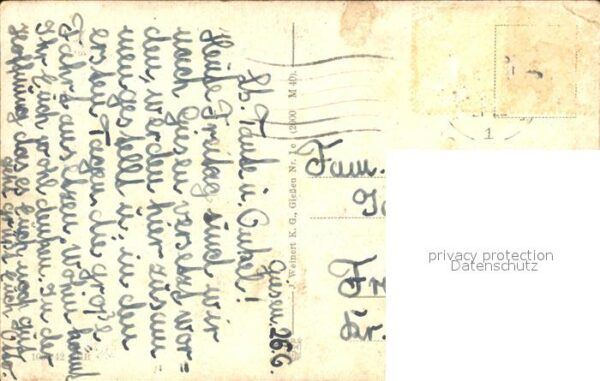 Giesen. 26.6.
Lb. Tante u. Onkel!
Heute Freitag sind wir
nach Gisen versetzt wor=
den, werden hier zusam
mengestellt u. in den
ersten Tagen, die große
Fahrt aus
Ihr Euch wohl denken. In der
Hoffnung das es Euch noch gut
geht grüßt Euch Otto.
J. Weinert K. G., Gießen Nr. 1c (2000 M 40).
Fam.
Fr
Kr.
1
privacy protection
Datenschutz